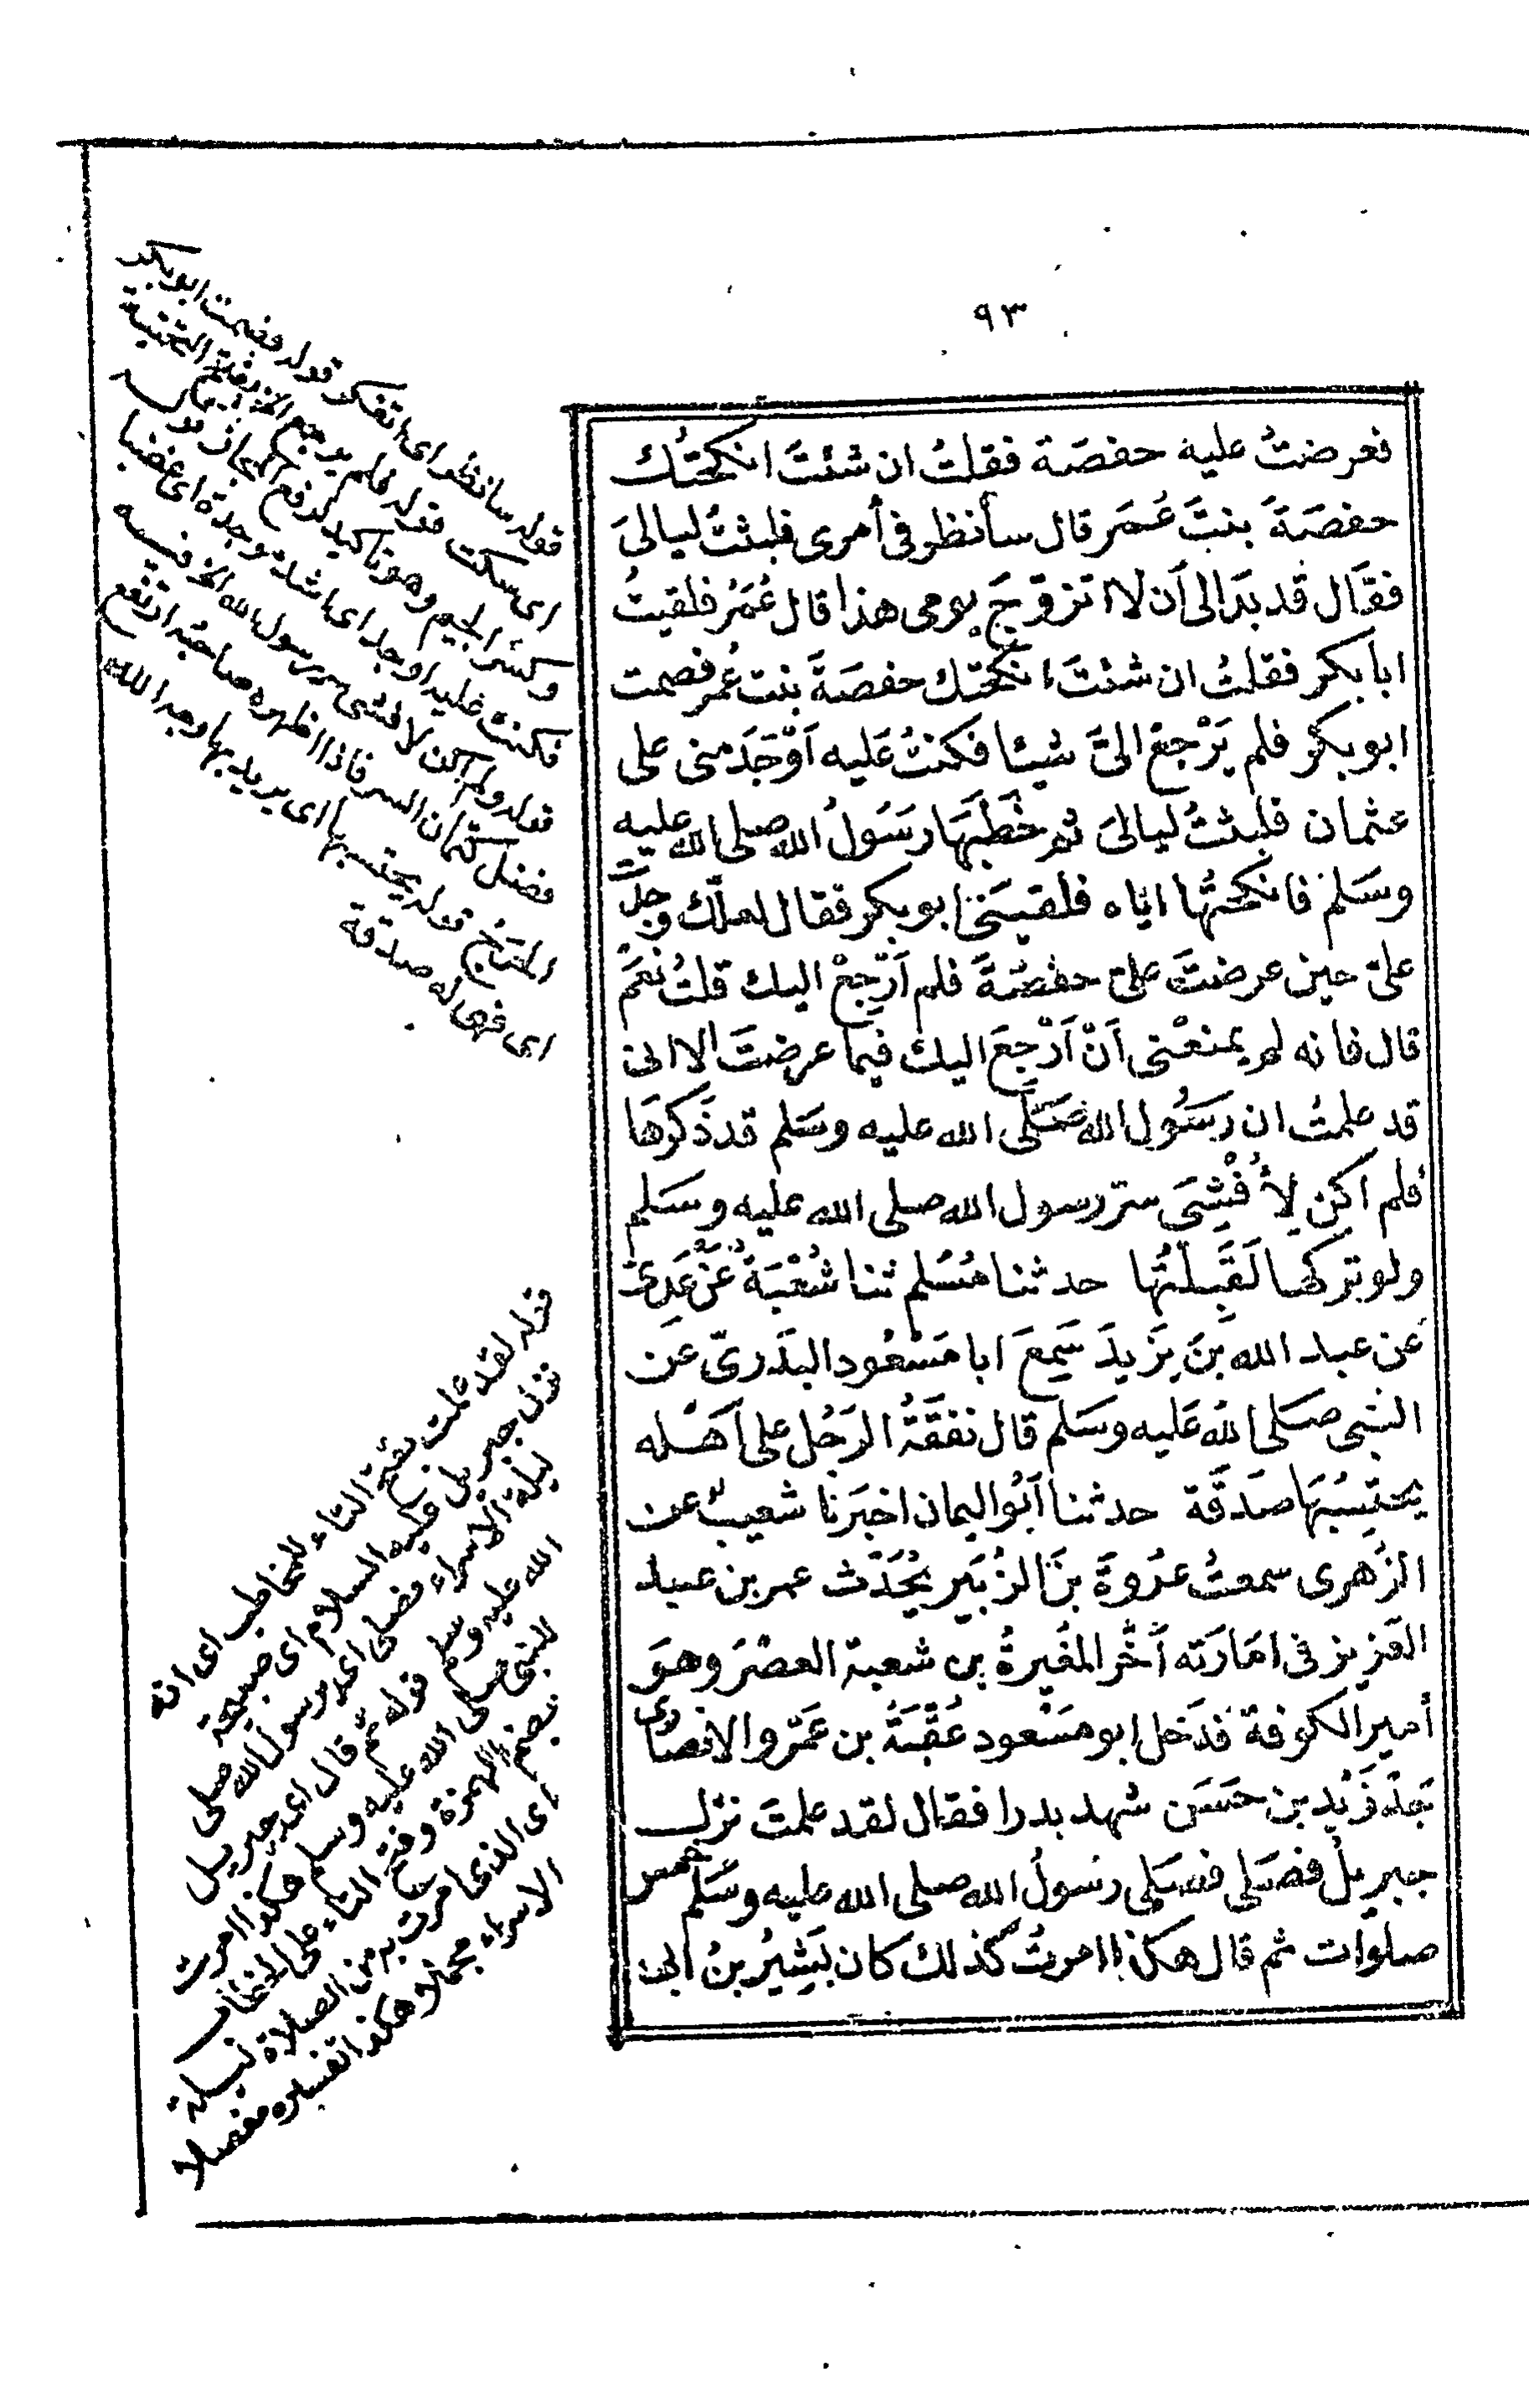 ٩٣
فعرضتُ عليه حفصَة فقلتُ ان شئتَ انكحتُك
حفصَةَ بنتَ عُمَر قال سأنظر فى أمرى فلبثتُ ليالىَ
فقَال قد بَدَا لى أَن لا اتزوّجَ يومى هذا قال عُمَرُ فلقيتُ
ابا بكر فقلتُ ان شئتَ انكحتك حفصَةَ بنت عُمر فصمت
ابو بكر فلم يَرْجِعْ الىَّ شيئا فكنتُ عَليه اَوْجَدَ منى على
عثمان فلبثتُ ليالىَ ثم خَطَبَهَا رسَوُلُ الله صلى الله عليه
وسَلم فانكحتُها اياه فلقيَنى ابو بكر فقال لعلّك وجدتَ
علىّ حين عرضتَ علىّ حفصَةَ فلم اَرْجِعْ اليك قلتُ نعَمْ
قال فانه لم يمنعْنى اَنْ اَرْجِعَ اليك فيما عرضتَ الا انى
قد علمتُ ان رسَوُل الله صَلَّى الله عليه وسَلم قد ذَكرهَا
فلم اكن لِأُفْشِىَ سرّ رسول الله صلى الله عليه وسَلم
ولو تركها لَقَبِلتُها حدثنا مُسْلم ثنا شُعْبَةُ عَنْ عَدِىّ
عَن عبد الله بنَ يَزيدَ سَمِعَ ابا مَسْعُود البَدرىّ عَن
النبى صَلى الله عَليه وسَلم قال نفقَةُ الرَجُل على اَهْله
يحتسِبُهَا صَدَقَة حدثنا اَبُو اليمان اخبَرنا شعيبٌ عن
الزُهرى سمعتُ عُروةَ بنَ الزُبَير يُحَدّث عمر بن عبد
العَزيز فى امَارَته أخَّر المغُيرةُ بن شعبة العصْرَ وهوَ
أمير الكوفة فدَخل ابو مسَعود عُقبَةُ بن عَمْرو الانصَارى
جَدّ زَيْدِ بن حَسَن شهد بدرا فقال لقد علمتَ نزل
جبريلُ فصَلى فصَلى رسُولُ الله صلى الله عليه وسَلم خمس
صلوات ثم قال هكذا امرتُ كذلك كان بَشِيُر بنُ ابى
قوله سانظر اى اتفكر قوله فصمت ابو بكر
اى سكت قوله فلم يرجع الخ بفتح التحتية
وكسر الجيم وهو تاكيد لرفع المجاز
فكنت عليه اوجد اى اشد موجدة اى غضبا
قوله ولم اكن لافشى سر رسول الله الخ فيه
فضل كتمان السر فاذا اظهره صاحبه ارتفع
الحرج قوله يحتسبها اى يريد بها وجه الله
اى فهى له صدقة
قوله لقد علمت بفتح التاء للمخاطب اى انه
نزل جبريل عليه السلام اى صبيحة
ليلة الاسراء فصلى اى رسول الله صلى
الله عليه وسلم قوله ثم قال اى جبريل
للنبى صلى الله عليه وسلم هكذا امرت
بضم الهمزة وفتح التاء على المخاطب
اى الذى امرت به من الصلاة ليلة
الاسراء مجملا هكذا تفسيره مفصلا